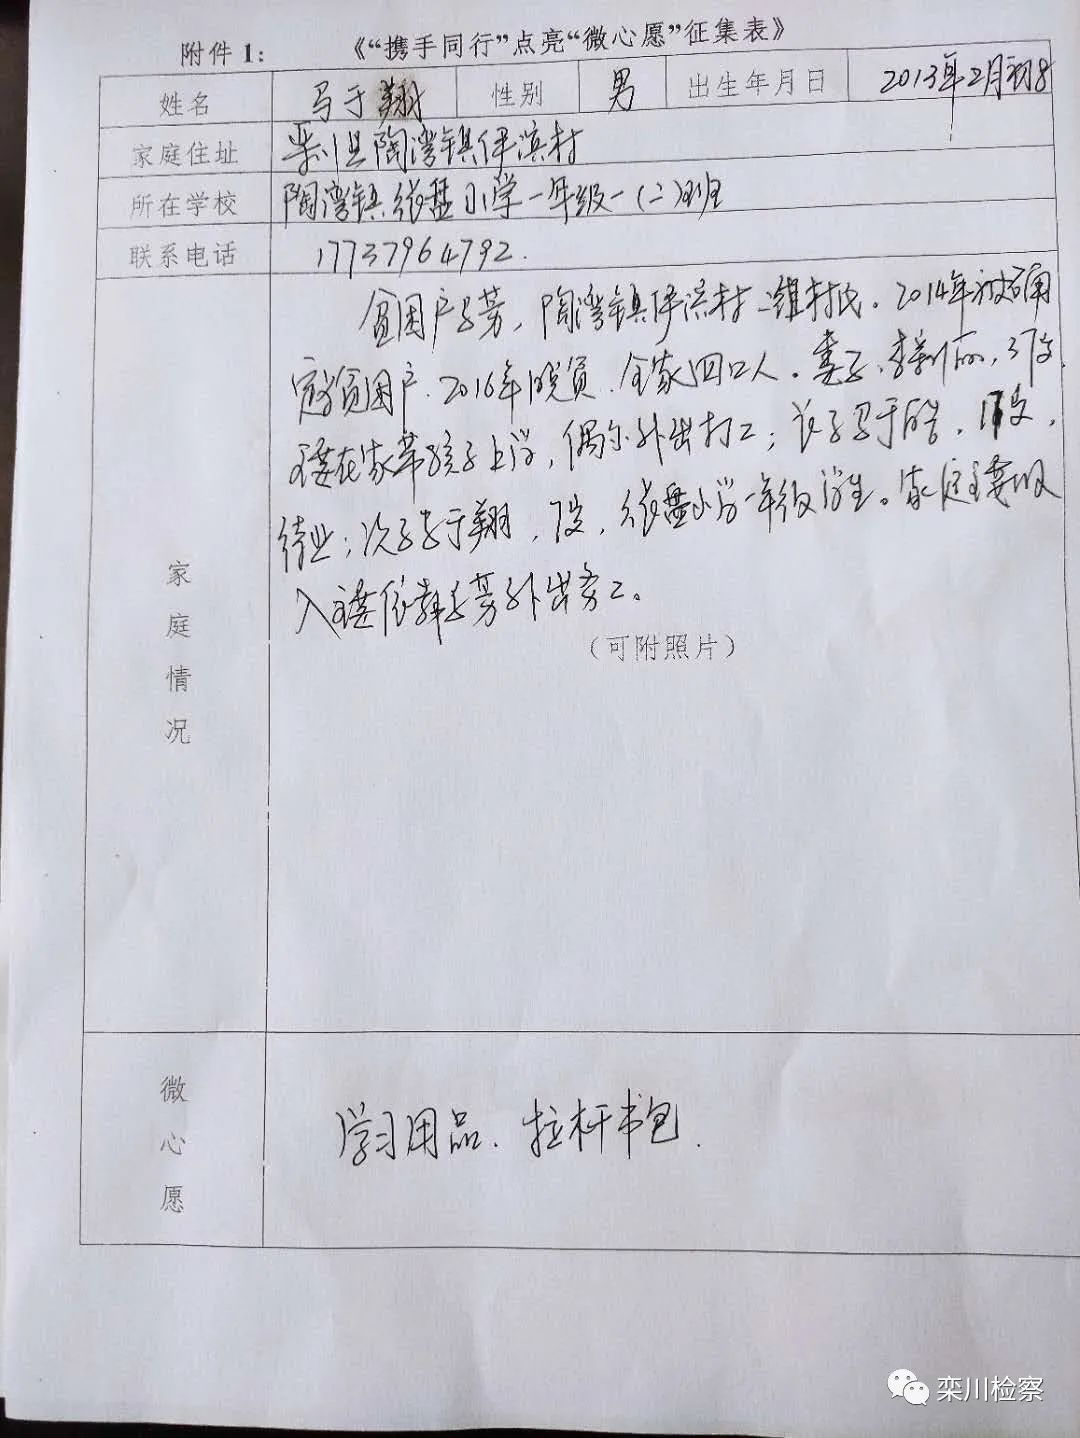 附件1： 《“携手同行”点亮“微心愿”征集表》
姓名 马于翔 性别 男 出生年月日 2013年2月初8
家庭住址 栾川县陶湾镇伊滨村
所在学校 陶湾镇线盘小学一年级一(二)班
联系电话 17737964792.
贫困户 ，陶湾镇伊滨村 组村民。2014年被
贫困户.2016年脱贫.全家四口人。妻子，37岁，
主要在家带孩子上学，偶尔外出打工；长子马于皓，17岁，
待业；次子 于翔，7岁，线盘小学一年级学生。家庭主要收
入主要依靠 外出务工。
（可附照片）
家庭情况
微心愿
学习用品、拉杆书包.
栾川检察